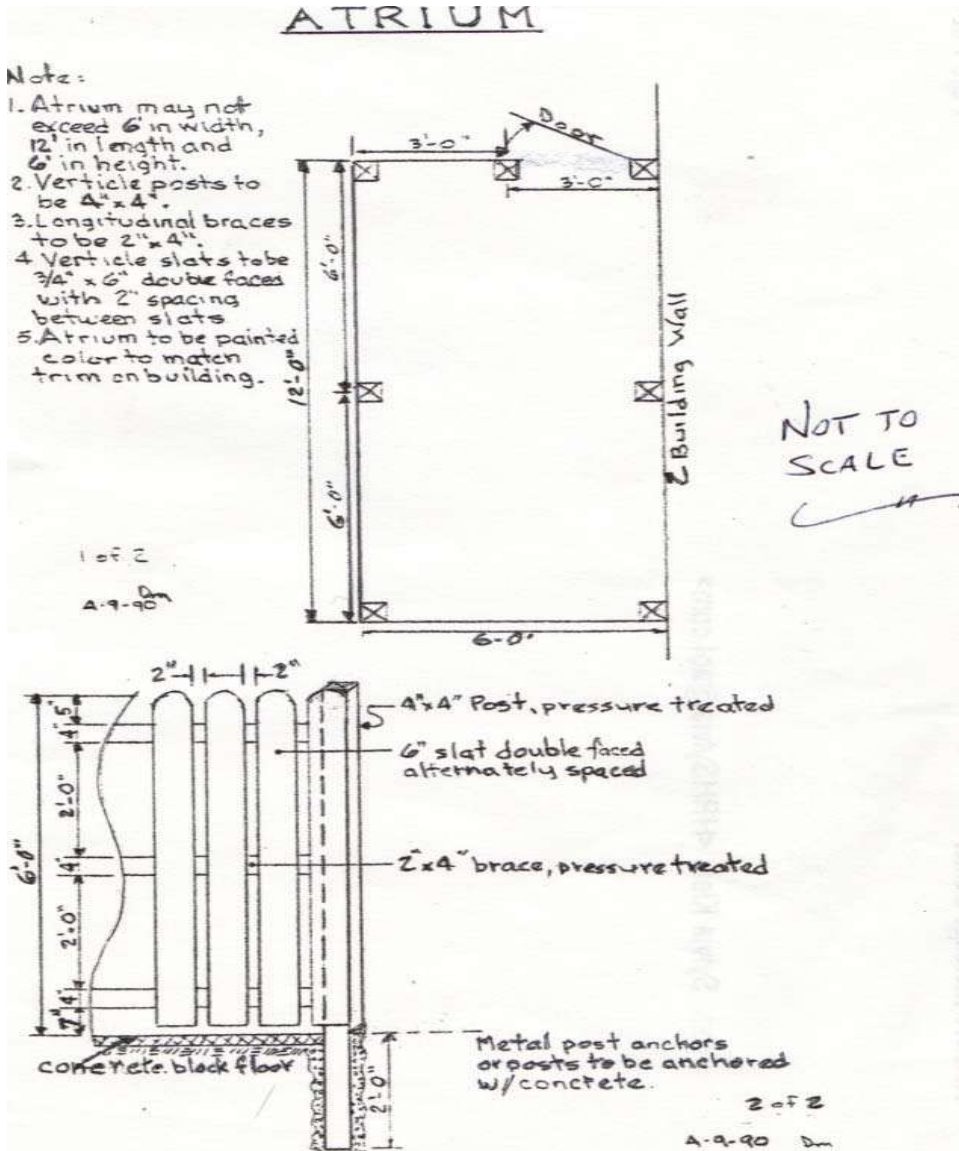 ATRIUM
Note:
1. Atrium may not
exceed 6' in width,
12' in length and
6' in height.
2. Verticle posts to
be 4"x 4".
3. Longitudinal braces
to be 2"x 4".
4 Verticle slats to be
3/4" x 6" double faced
with 2" spacing
between slats
5. Atrium to be painted
color to match
trim on building.
Door
3'-0"
3'-0"
6'-0"
12'-0"
6'-0"
6-0"
Building Wall
NOT TO
SCALE
1 of 2
Dm
A-9-90
2" 2"
5"
4"
2'-0"
4"
2'-0"
4"
7"
6'-0"
4"x4" Post, pressure treated
6" slat double faced
alternately spaced
2"x4" brace, pressure treated
concrete block floor
2'-0"
Metal post anchors
or posts to be anchored
w/concrete.
2 of 2
A-9-90 Dm